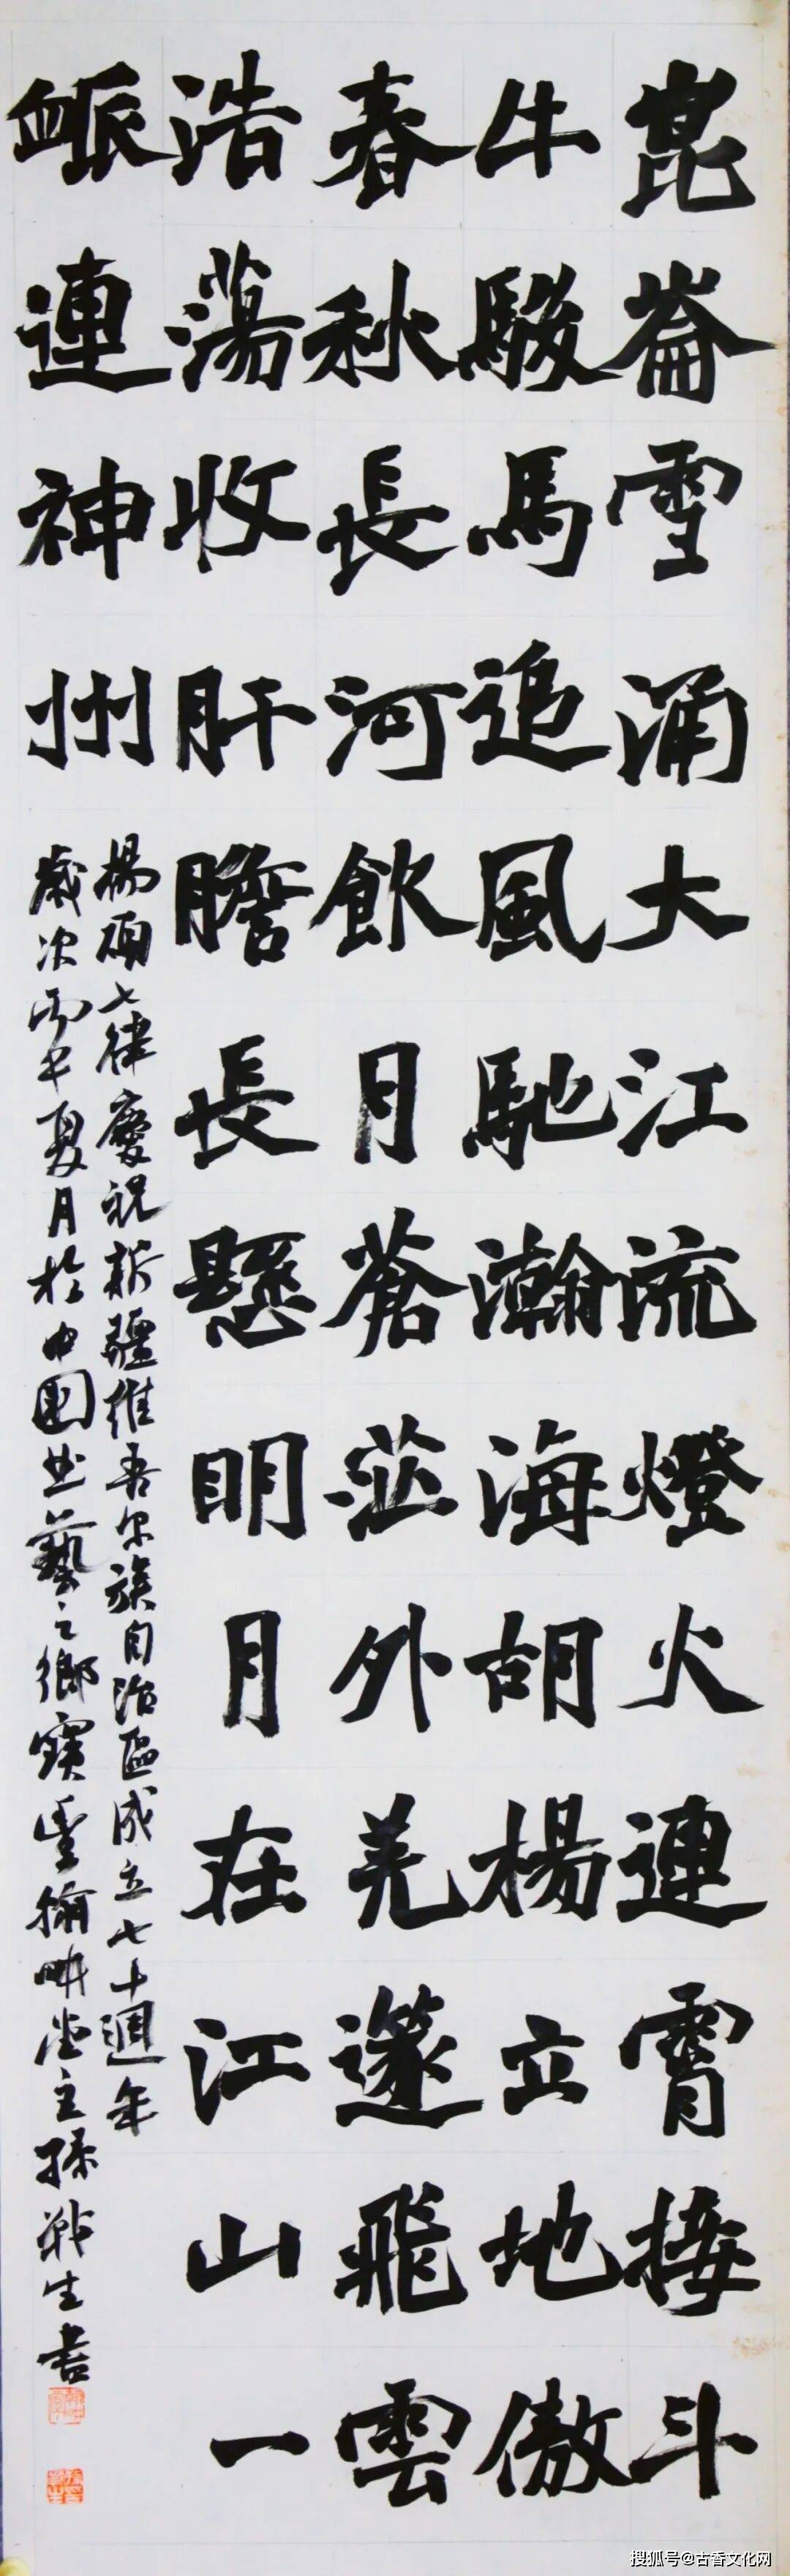 崑崙雪涌大江流燈火連霄接斗
牛駿馬追風馳瀚海胡楊立地傲
春秋長河飲月蒼茫外羌篴飛雲
浩蕩收肝膽長懸明月在江山一
衇連神州
楊七律慶祝新疆維吾尔族自治區成立七十週年
歲次丙午夏月於中國书藝之鄉寶豐畊堂主孫戰生書
搜狐号@古香文化网